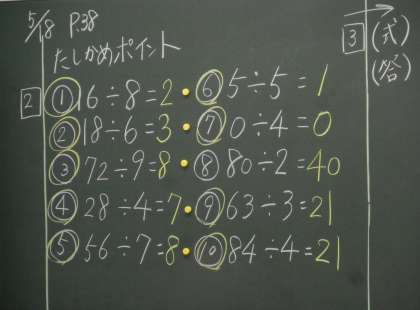 5/18 P.38
たしかめポイント
2 ① 16÷8=2 ・ ⑥ 5÷5=1
② 18÷6=3 ・ ⑦ 0÷4=0
③ 72÷9=8 ・ ⑧ 80÷2=40
④ 28÷4=7 ・ ⑨ 63÷3=21
⑤ 56÷7=8 ・ ⑩ 84÷4=21
3 (式)
(答)